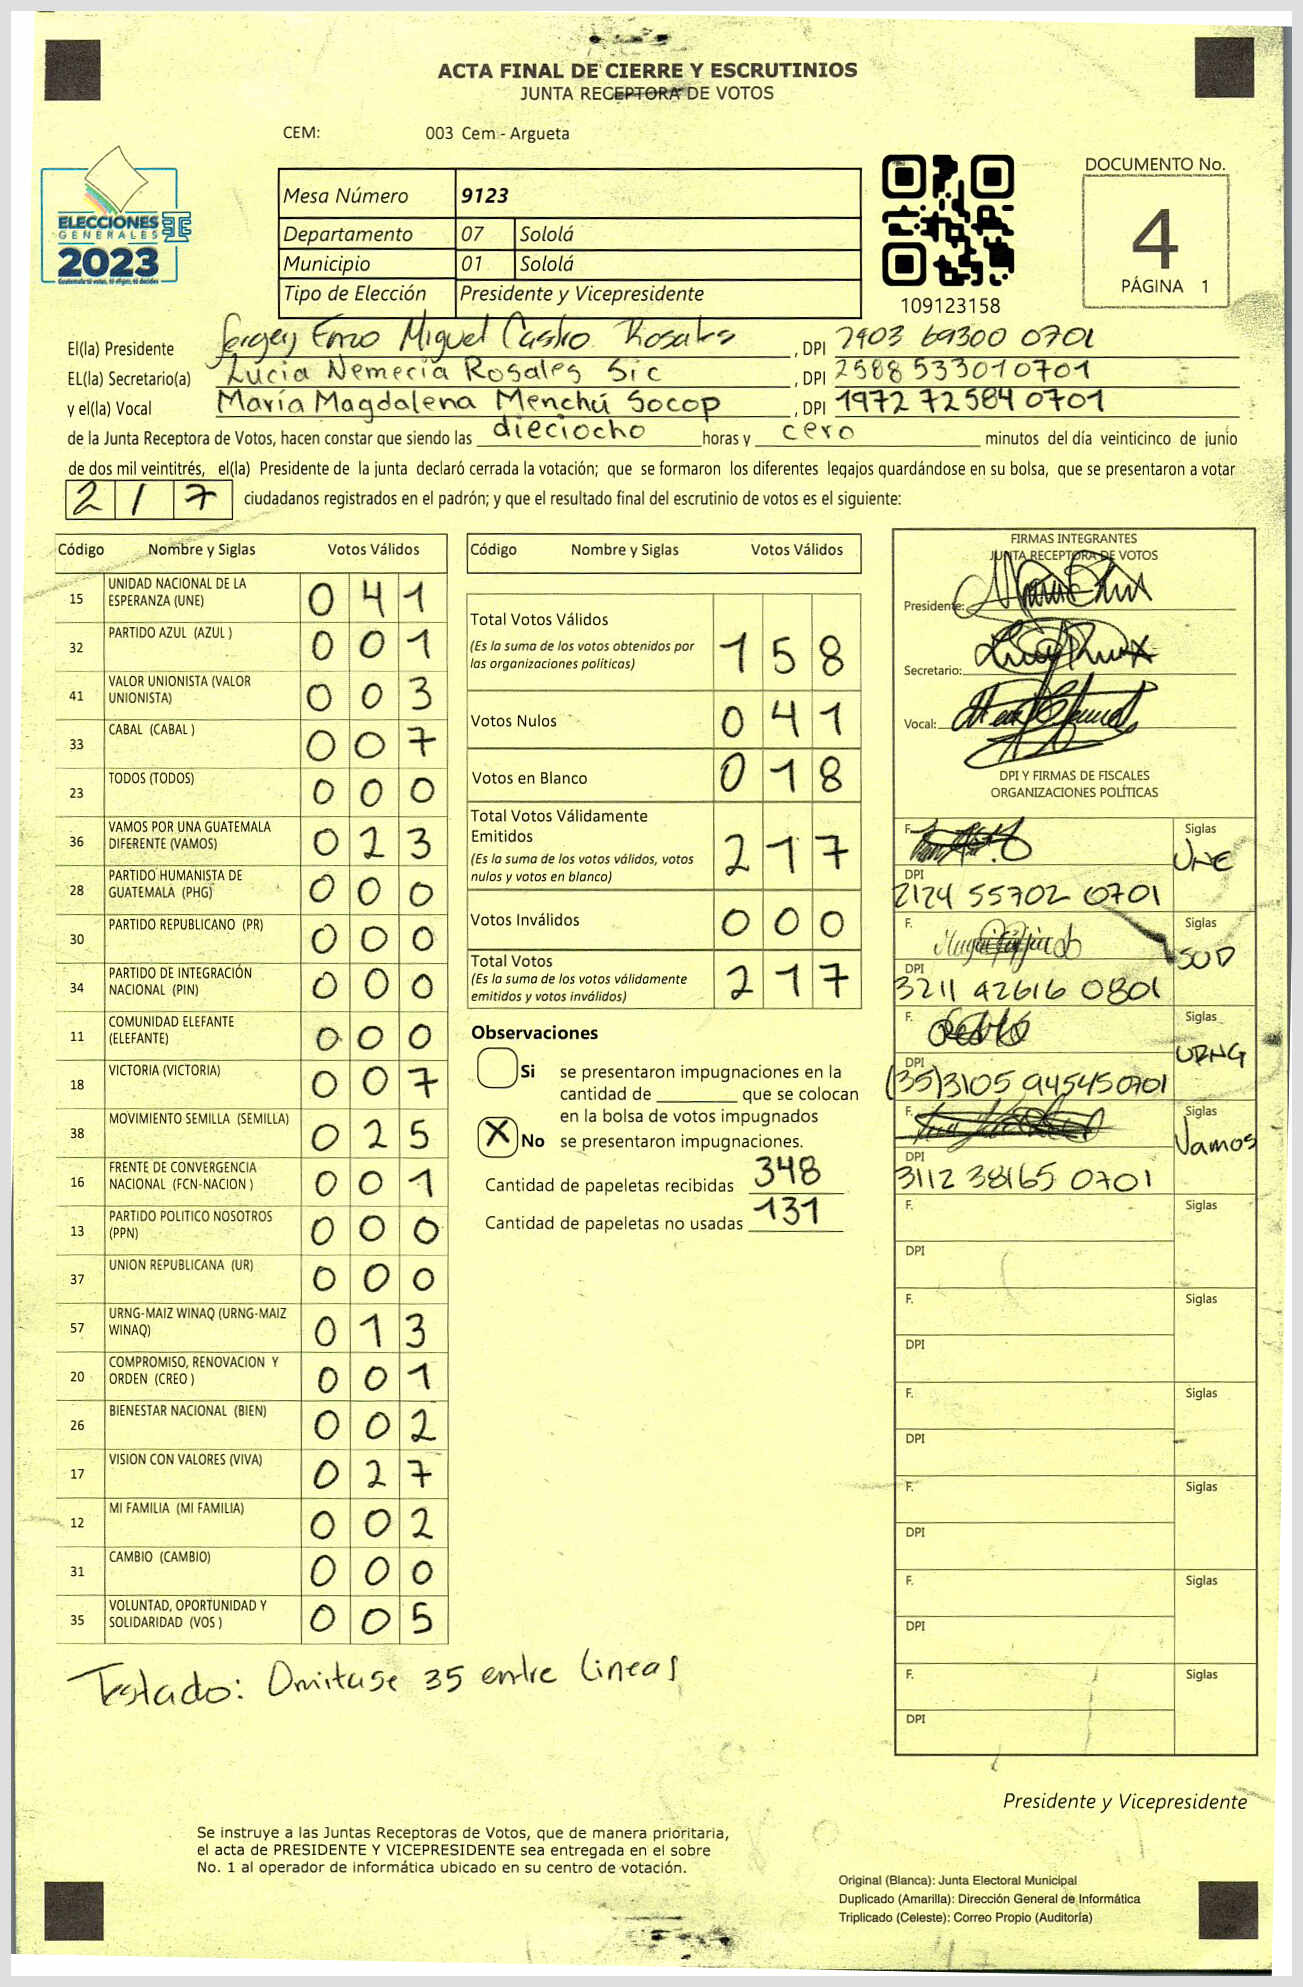 ACTA FINAL DE CIERRE Y ESCRUTINIOS
JUNTA RECEPTORA DE VOTOS
CEM: 003 Cem - Argueta
ELECCIONES
GENERALES
2023
Guatemala tú votas, tú eliges, tú decides
Mesa Número 9123
Departamento 07 Sololá
Municipio 01 Sololá
Tipo de Elección Presidente y Vicepresidente
109123158
DOCUMENTO No.
4
PÁGINA 1
El(la) Presidente Enzo Miguel Castro Rosales , DPI 2903 69300 0701
EL(la) Secretario(a) Lucia Nemecia Rosales Sic , DPI 2588 53301 0701
y el(la) Vocal María Magdalena Menchú Socop , DPI 1972 72584 0701
de la Junta Receptora de Votos, hacen constar que siendo las dieciocho horas y cero minutos del día veinticinco de junio
de dos mil veintitrés, el(la) Presidente de la junta declaró cerrada la votación; que se formaron los diferentes legajos guardándose en su bolsa, que se presentaron a votar
2 1 7 ciudadanos registrados en el padrón; y que el resultado final del escrutinio de votos es el siguiente:
Código Nombre y Siglas Votos Válidos
15 UNIDAD NACIONAL DE LA ESPERANZA (UNE) 0 4 1
32 PARTIDO AZUL (AZUL ) 0 0 1
41 VALOR UNIONISTA (VALOR UNIONISTA) 0 0 3
33 CABAL (CABAL ) 0 0 7
23 TODOS (TODOS) 0 0 0
36 VAMOS POR UNA GUATEMALA DIFERENTE (VAMOS) 0 2 3
28 PARTIDO HUMANISTA DE GUATEMALA (PHG) 0 0 0
30 PARTIDO REPUBLICANO (PR) 0 0 0
34 PARTIDO DE INTEGRACIÓN NACIONAL (PIN) 0 0 0
11 COMUNIDAD ELEFANTE (ELEFANTE) 0 0 0
18 VICTORIA (VICTORIA) 0 0 7
38 MOVIMIENTO SEMILLA (SEMILLA) 0 2 5
16 FRENTE DE CONVERGENCIA NACIONAL (FCN-NACION ) 0 0 1
13 PARTIDO POLITICO NOSOTROS (PPN) 0 0 0
37 UNION REPUBLICANA (UR) 0 0 0
57 URNG-MAIZ WINAQ (URNG-MAIZ WINAQ) 0 1 3
20 COMPROMISO, RENOVACION Y ORDEN (CREO ) 0 0 1
26 BIENESTAR NACIONAL (BIEN) 0 0 2
17 VISION CON VALORES (VIVA) 0 2 7
12 MI FAMILIA (MI FAMILIA) 0 0 2
31 CAMBIO (CAMBIO) 0 0 0
35 VOLUNTAD, OPORTUNIDAD Y SOLIDARIDAD (VOS ) 0 0 5
Testado: Omitase 35 entre lineas
Código Nombre y Siglas Votos Válidos
Total Votos Válidos
(Es la suma de los votos obtenidos por
las organizaciones políticas) 1 5 8
Votos Nulos 0 4 1
Votos en Blanco 0 1 8
Total Votos Válidamente
Emitidos
(Es la suma de los votos válidos, votos
nulos y votos en blanco) 2 1 7
Votos Inválidos 0 0 0
Total Votos
(Es la suma de los votos válidamente
emitidos y votos inválidos) 2 1 7
Observaciones
Si se presentaron impugnaciones en la
cantidad de ________ que se colocan
en la bolsa de votos impugnados
X No se presentaron impugnaciones.
Cantidad de papeletas recibidas 348
Cantidad de papeletas no usadas 131
FIRMAS INTEGRANTES
JUNTA RECEPTORA DE VOTOS
Presidente:
Secretario:
Vocal:
DPI Y FIRMAS DE FISCALES
ORGANIZACIONES POLÍTICAS
F. Siglas UNE
DPI
2124 55702 0701
F. Siglas SUD
DPI
3211 42616 0801
F. Siglas URNG
DPI
(35)3105 94545 0701
F. Siglas Vamos
DPI
3112 38165 0701
F. Siglas
DPI
F. Siglas
DPI
F. Siglas
DPI
F. Siglas
DPI
F. Siglas
DPI
F. Siglas
DPI
Presidente y Vicepresidente
Se instruye a las Juntas Receptoras de Votos, que de manera prioritaria,
el acta de PRESIDENTE Y VICEPRESIDENTE sea entregada en el sobre
No. 1 al operador de informática ubicado en su centro de votación.
Original (Blanca): Junta Electoral Municipal
Duplicado (Amarilla): Dirección General de Informática
Triplicado (Celeste): Correo Propio (Auditoría)